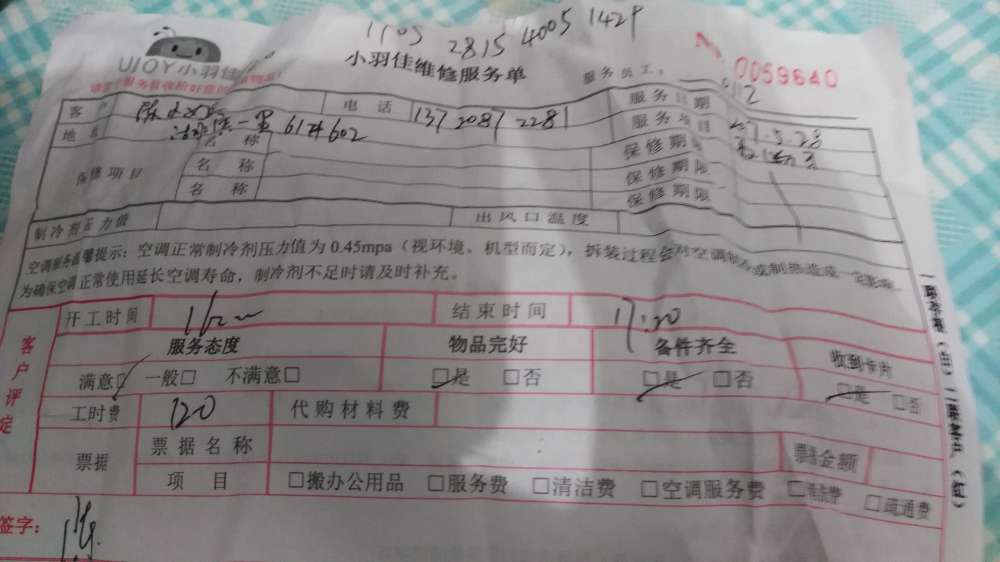 1105 2815 4005 1429
UIOY小羽佳
小羽佳维修服务单
服务员工:
No 0059640
电话 1372087 2281 服务日期 5.28
6174602 服务项目
名称 保修期
保修项目 名称 保修期限
名称 保修期限
制冷剂压力值 出风口温度
空调服务温馨提示:空调正常制冷剂压力值为0.45mpa(视环境、机型而定),拆装过程会对空调制冷或制热造成一定影响
为确保空调正常使用延长空调寿命,制冷剂不足时请及时补充。
客户评定
开工时间 结束时间 17:20
服务态度 物品完好 备件齐全 收到卡片
满意□ 一般□ 不满意□ □是 □否 □是 □否 □是 □否
工时费 120 代购材料费
票据 票据名称 票据金额
项目 □搬办公用品 □服务费 □清洁费 □空调服务费 □维修费 □疏通费
签字:
一联存根(白)二联客户(红)